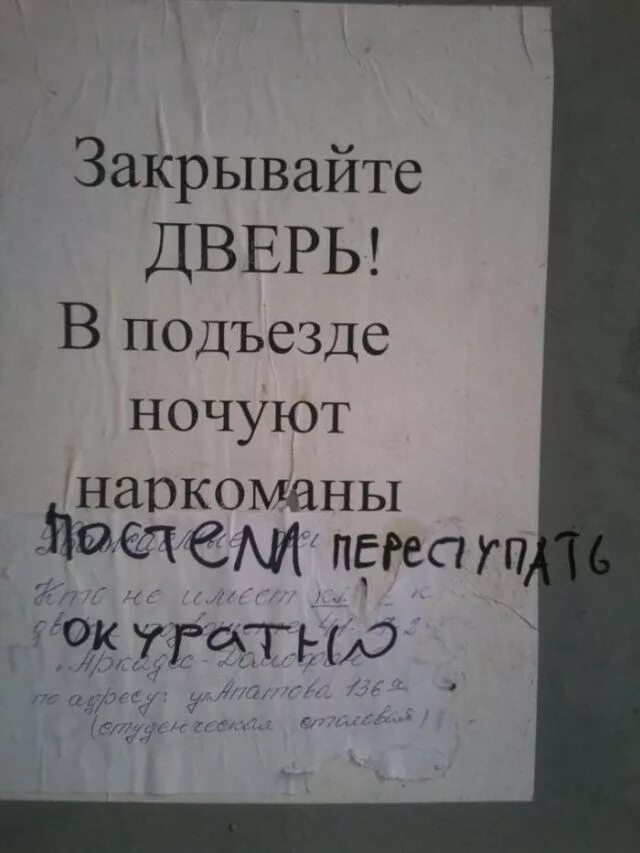 Закрывайте
ДВЕРЬ!
В подъезде
ночуют
наркоманы
ПОСТЕЛИ ПЕРЕСТУПАТЬ
Кто не имеет к
ОКУРАТНО
Аркадес-Домофон
по адресу: ул Апатова 136а
(студенческая столовая)